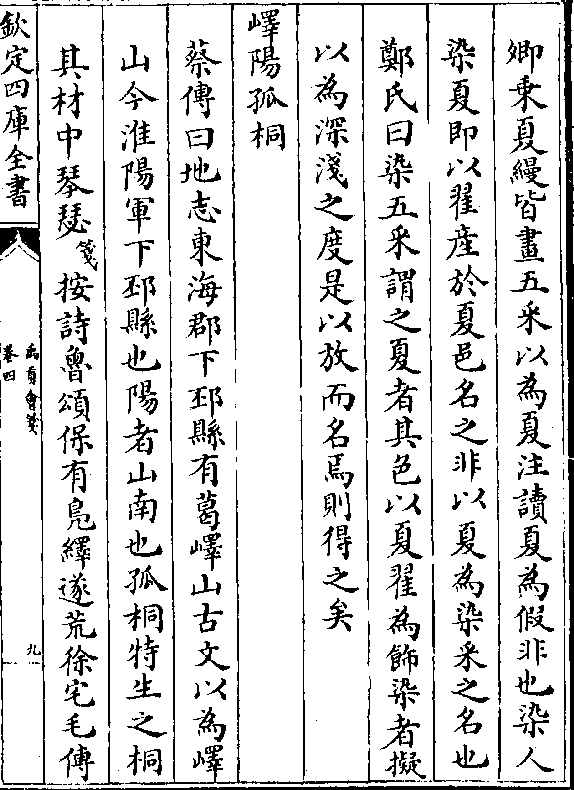 卿乗夏縵皆畫五采以為夏注讀夏為假非也染人
染夏即以翟産於夏邑名之非以夏為染采之名也
鄭氏曰染五采謂之夏者其色以夏翟為飾染者擬
以為深淺之度是以放而名焉則得之矣
嶧陽孤桐
蔡傳曰地志東海郡下邳縣有葛嶧山古文以為嶧
山今淮陽軍下邳縣也陽者山南也孤桐特生之桐
其材中琴瑟箋按詩魯頌保有鳧繹遂荒徐宅毛傳
欽定四庫全書
禹貢會箋
卷四
九